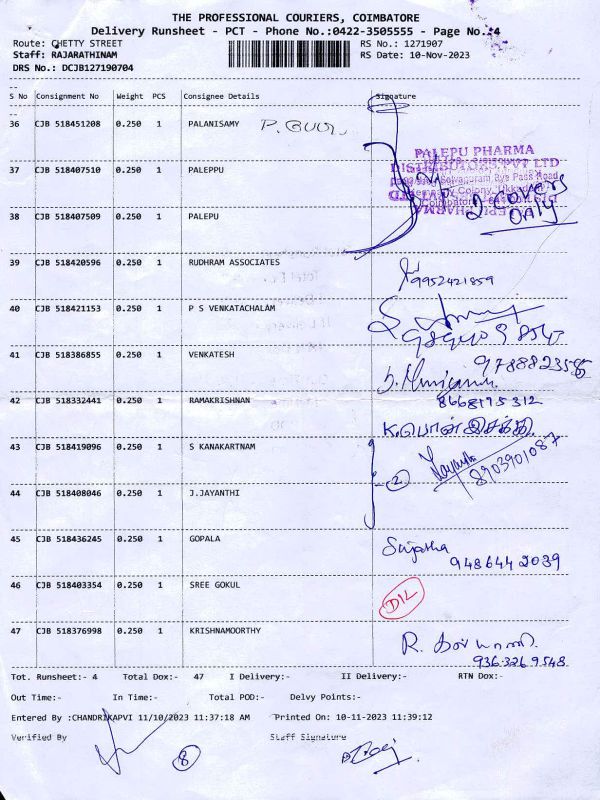 THE PROFESSIONAL COURIERS, COIMBATORE
Delivery Runsheet - PCT - Phone No.:0422-3505555 - Page No.:4
Route: CHETTY STREET RS No.: 1271907
Staff: RAJARATHINAM RS Date: 10-Nov-2023
DRS No.: DCJB127190704
S No Consignment No Weight PCS Consignee Details Signature
36 CJB 518451208 0.250 1 PALANISAMY
PALEPU PHARMA
37 CJB 518407510 0.250 1 PALEPPU
2 covers
only
38 CJB 518407509 0.250 1 PALEPU
39 CJB 518420596 0.250 1 RUDHRAM ASSOCIATES
9952421859
40 CJB 518421153 0.250 1 P S VENKATACHALAM
41 CJB 518386855 0.250 1 VENKATESH
42 CJB 518332441 0.250 1 RAMAKRISHNAN
8668175312
43 CJB 518419096 0.250 1 S KANAKARTNAM
8903901087
2
44 CJB 518408046 0.250 1 J.JAYANTHI
45 CJB 518436245 0.250 1 GOPALA
Sujatha
9486442039
46 CJB 518403354 0.250 1 SREE GOKUL
D/L
47 CJB 518376998 0.250 1 KRISHNAMOORTHY
9363269548
Tot. Runsheet:- 4 Total Dox:- 47 I Delivery:- II Delivery:- RTN Dox:-
Out Time:- In Time:- Total POD:- Delvy Points:-
Entered By :CHANDRIKAPVI 11/10/2023 11:37:18 AM Printed On: 10-11-2023 11:39:12
Verified By Staff Signature
8